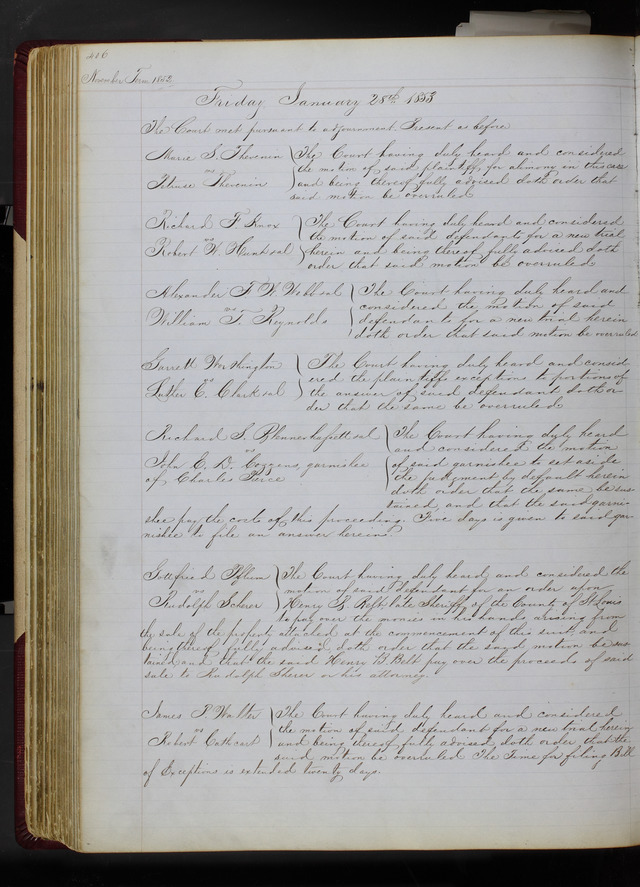 416
November Term 1852
Friday January 28th 1853
The Court met pursuant to adjournment Present as before
Marie S. Thevenin
vs
Thevenin
The Court having duly heard and considered
the motion of said plaintiff for alimony in this case
and being thereof fully advised doth order that
said motion be overruled
Richard F. Knox
vs
Robert W. Hunt et al
The Court having duly heard and considered
the motion of said defendants for a new trial
herein and being thereof fully advised doth
order that said motion be overruled
Alexander T. W. Webb et al
vs
William T. Reynolds
The Court having duly heard and
considered the motion of said
defendant for a new trial herein
doth order that said motion be overruled
Garrett Worthington
vs
Luther C. Clark et al
The Court having duly heard and consid
ered the plaintiffs exceptions to portions of
the answer of said defendant doth or
der that the same be overruled
Richard S. Blennerhassett et al
vs
John C. D. Cozzens, garnishee
of Charles Pierce
The Court having duly heard
and considered the motion
of said garnishee to set aside
the judgment by default herein
doth order that the same be sus
tained and that the said garni-
shee pay the costs of this proceeding. Five days is given to said gar-
nishee to file an answer herein.
Gottfried Pflum
vs
Rudolph Scherer
The Court having duly heard and considered the
motion of said defendant for an order upon
Henry B. Belt, late Sheriff of the County of St Louis
to pay over the monies in his hands arising from
the sale of the property attached at the commencement of this suit and
being thereof fully advised doth order that the said motion be sus
tained and that the said Henry B Belt pay over the proceeds of said
sale to Rudolph Sherer or his attorney.
James P. Walter
vs
Robert Cathcart
The Court having duly heard and considered
the motion of said defendant for a new trial herein
and being thereof fully advised doth order that the
said motion be overruled The Time for filing Bill
of Exceptions is extended twenty days.